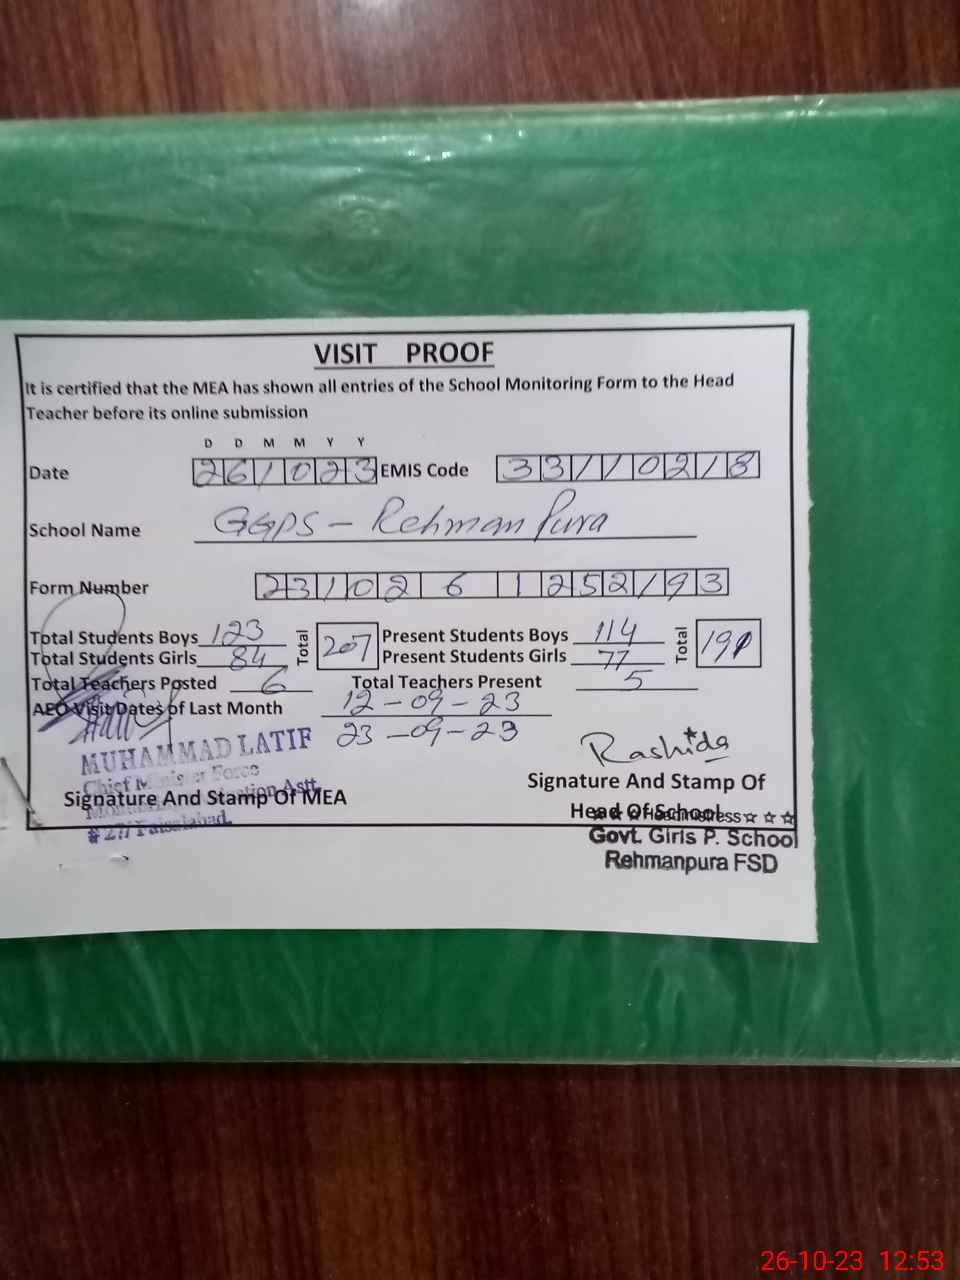 VISIT PROOF
It is certified that the MEA has shown all entries of the School Monitoring Form to the Head
Teacher before its online submission
D D M M Y Y
Date 261023 EMIS Code 33110218
School Name GGPS - Rehman Pura
Form Number 2310261252193
Total Students Boys 123 Total 207 Present Students Boys 114 Total 191
Total Students Girls 84 Present Students Girls 77
Total Teachers Posted 6 Total Teachers Present 5
AEO Visit Dates of Last Month 12-09-23
23-09-23
MUHAMMAD LATIF
Rashida
Chief Minister Force
Signature And Stamp Of MEA
Signature And Stamp Of
Head Of School
Headmistress☆ ☆ ☆
Faisalabad
Govt. Girls P. School
Rehmanpura FSD
26-10-23 12:53